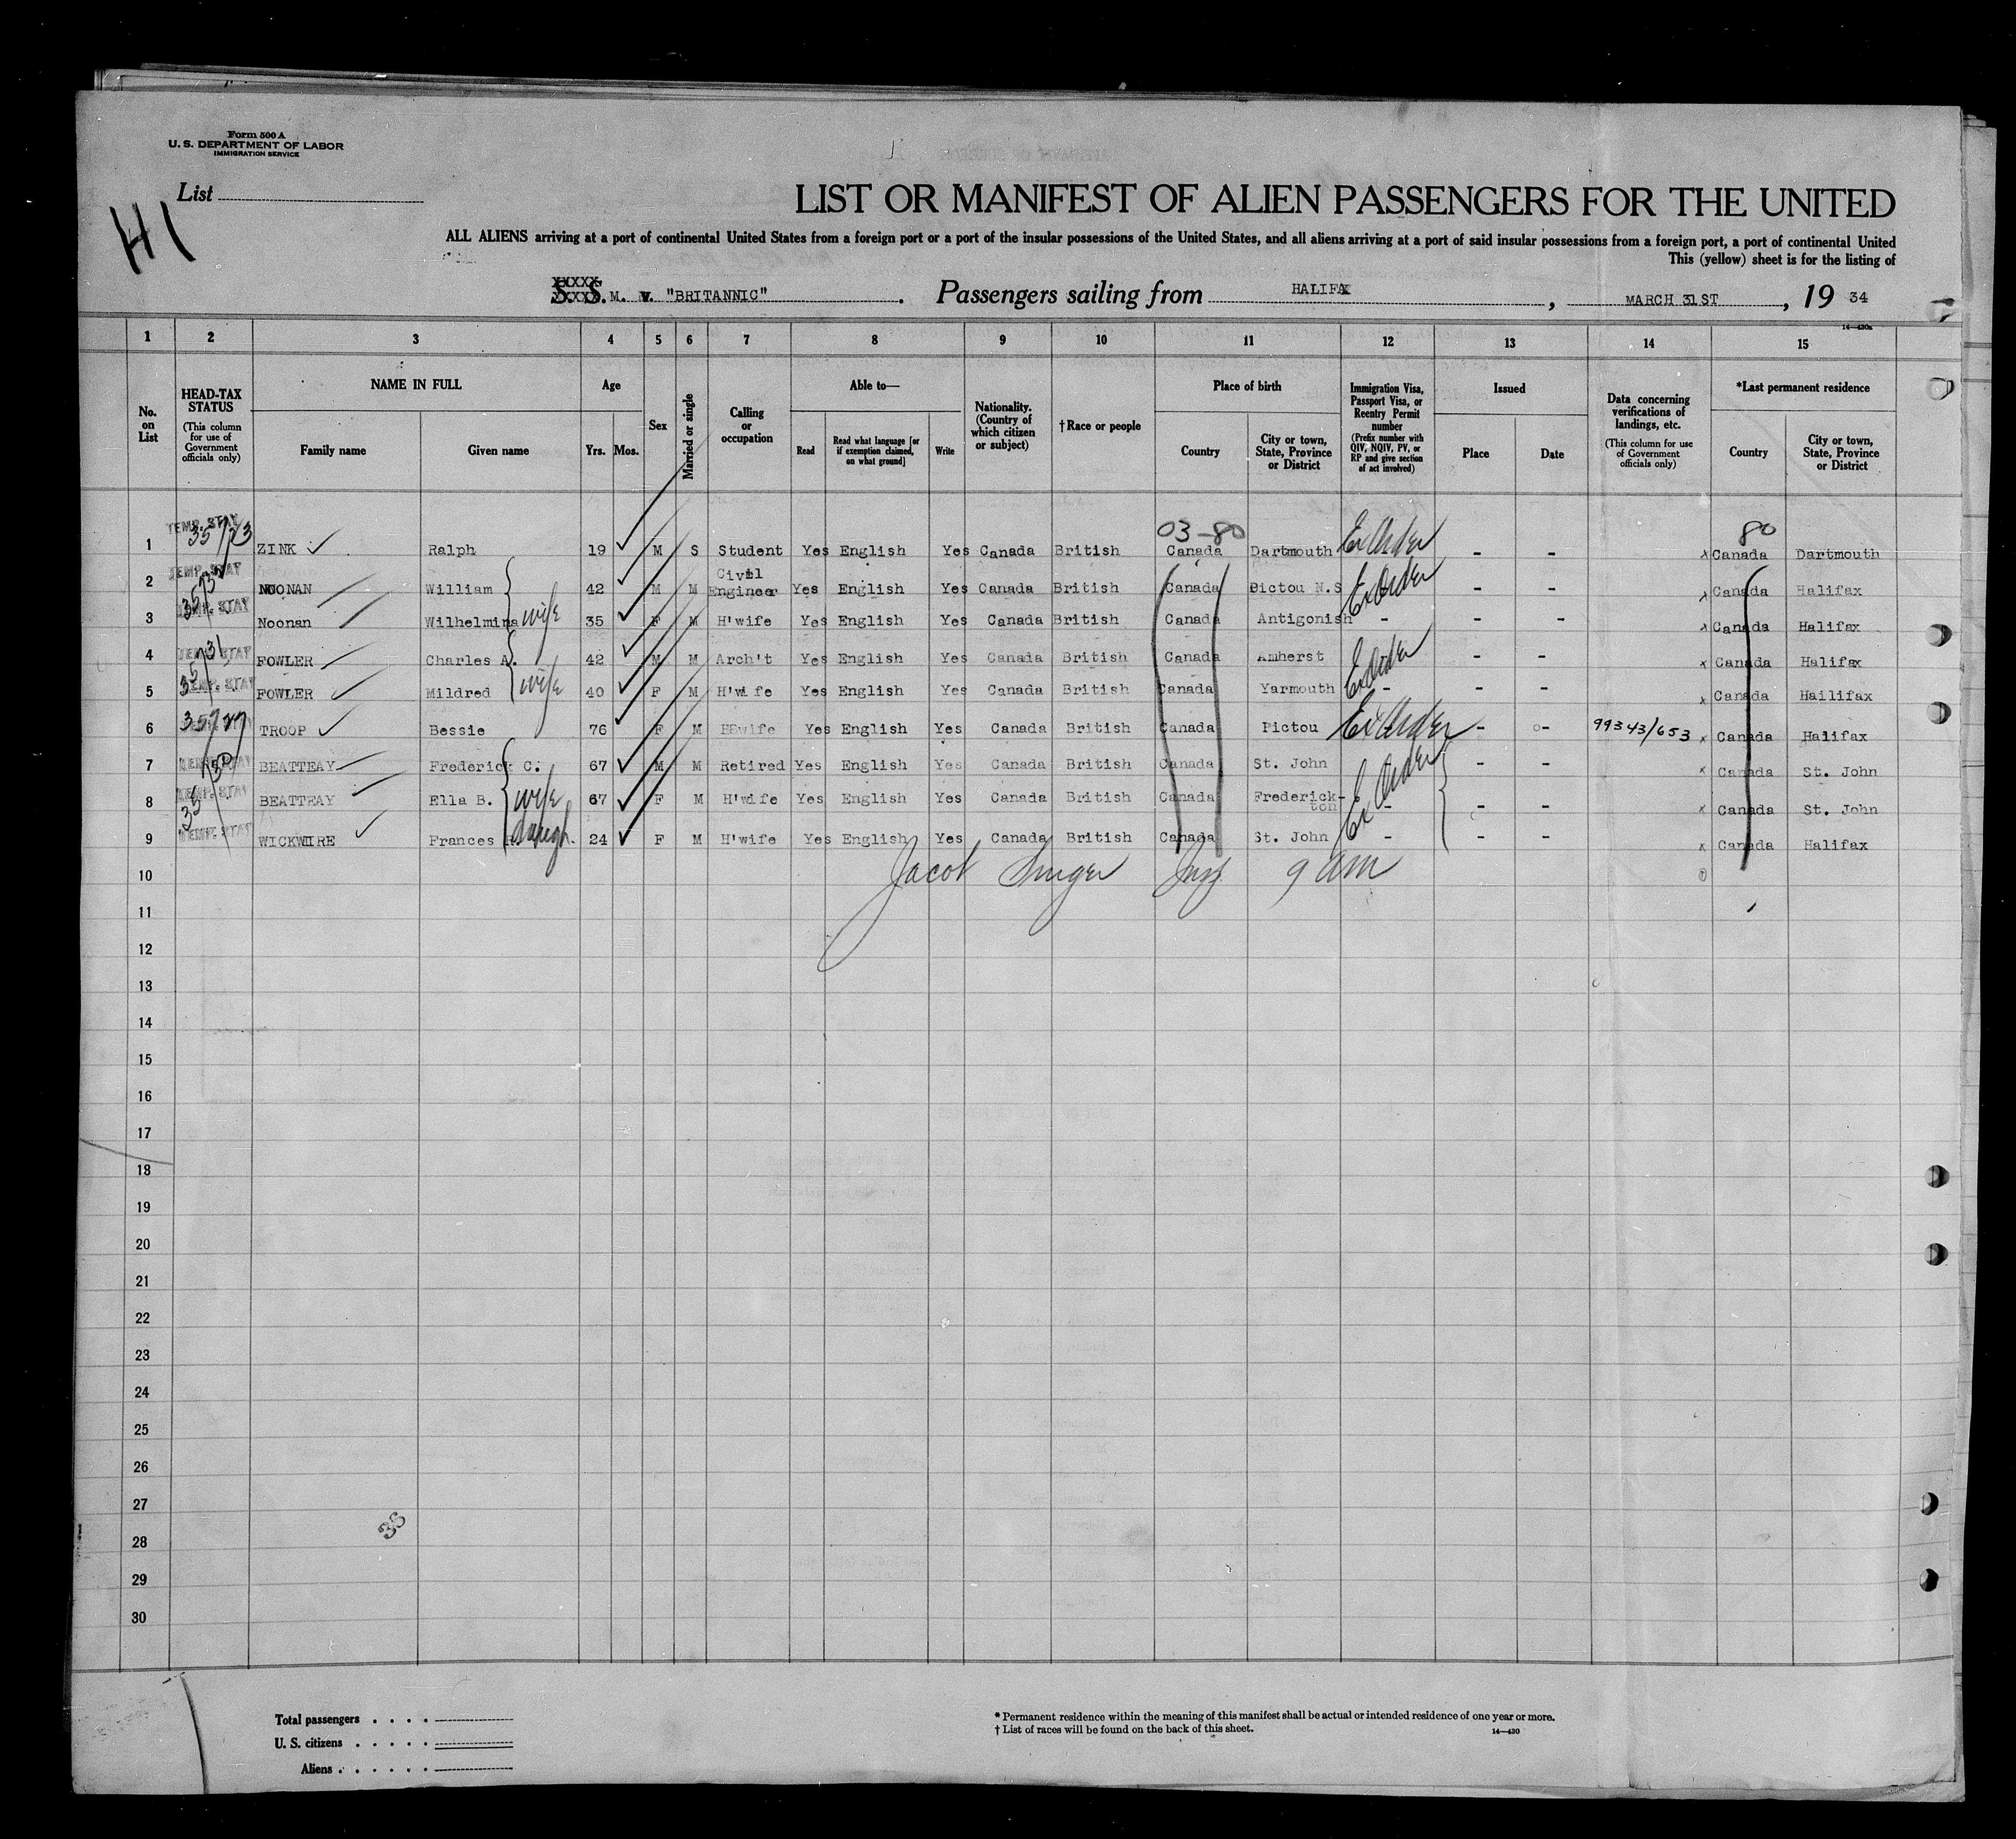 Form 500 A
U. S. DEPARTMENT OF LABOR
IMMIGRATION SERVICE
List
H1
LIST OR MANIFEST OF ALIEN PASSENGERS FOR THE UNITED
ALL ALIENS arriving at a port of continental United States from a foreign port or a port of the insular possessions of the United States, and all aliens arriving at a port of said insular possessions from a foreign port, a port of continental United
This (yellow) sheet is for the listing of
S. S. M. v. "BRITANNIC" . Passengers sailing from HALIFAX , MARCH 31ST , 19 34
14—430a
1 2 3 4 5 6 7 8 9 10 11 12 13 14 15
No. on List
HEAD-TAX STATUS
(This column for use of Government officials only)
NAME IN FULL
Family name
Given name
Age
Yrs. Mos.
Sex
Married or single
Calling or occupation
Able to—
Read
Read what language [or if exemption claimed, on what ground]
Write
Nationality. (Country of which citizen or subject)
†Race or people
Place of birth
Country
City or town, State, Province or District
Immigration Visa, Passport Visa, or Reentry Permit number
(Prefix number with QIV, NQIV, PV, or RP and give section of act involved)
Issued
Place
Date
Data concerning verifications of landings, etc.
(This column for use of Government officials only)
*Last permanent residence
Country
City or town, State, Province or District
03-80 80
1 TEMP. STAY 35/23 ZINK Ralph 19 M S Student Yes English Yes Canada British Canada Dartmouth Ex Order - - x Canada Dartmouth
2 TEMP. STAY NOONAN William 42 M M Civil Engineer Yes English Yes Canada British Canada Pictou N.S Ex Order - - x Canada Halifax
3 TEMP. STAY Noonan Wilhelmina wife 35 F M H'wife Yes English Yes Canada British Canada Antigonish - - - x Canada Halifax
4 TEMP. STAY FOWLER Charles A. 42 M M Arch't Yes English Yes Canada British Canada Amherst Ex Order - - x Canada Halifax
5 TEMP. STAY FOWLER Mildred wife 40 F M H'wife Yes English Yes Canada British Canada Yarmouth - - - x Canada Hailifax
6 35/27 TROOP Bessie 76 F M H'wife Yes English Yes Canada British Canada Pictou Ex Order - - 99343/653 x Canada Halifax
7 TEMP. STAY BEATTEAY Frederick C. 67 M M Retired Yes English Yes Canada British Canada St. John Ex Order - - x Canada St. John
8 TEMP. STAY BEATTEAY Ella B. wife 67 F M H'wife Yes English Yes Canada British Canada Frederick-ton - - - x Canada St. John
9 TEMP. STAY WICKWIRE Frances daugh. 24 F M H'wife Yes English Yes Canada British Canada St. John - - - x Canada Halifax
10 Jacob Singer Insp 9 AM
11
12
13
14
15
16
17
18
19
20
21
22
23
24
25
26
27
36
28
29
30
Total passengers . . . .
U. S. citizens . . . . .
Aliens . . . . . .
* Permanent residence within the meaning of this manifest shall be actual or intended residence of one year or more.
† List of races will be found on the back of this sheet.
14—430